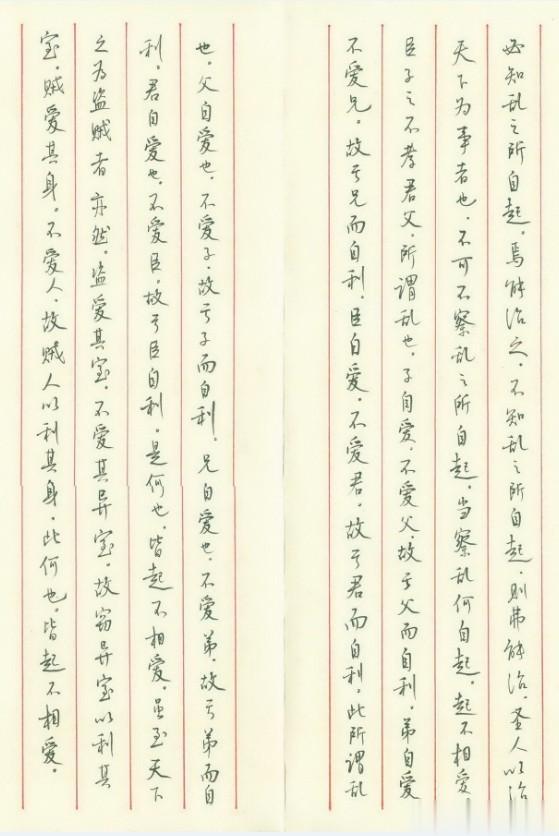 必知乱之所自起。焉能治之。不知乱之所自起。则弗能治。圣人以治
天下为事者也。不可不察乱之所自起。当察乱何自起。起不相爱
臣子之不孝君父。所谓乱也。子自爱。不爱父。故亏父而自利。弟自爱
不爱兄。故亏兄而自利。臣自爱。不爱君。故亏君而自利。此所谓乱
也。父自爱也。不爱子。故亏子而自利。兄自爱也。不爱弟。故亏弟而自
利。君自爱也。不爱臣。故亏臣自利。是何也。皆起不相爱。虽至天下
之为盗贼者亦然。盗爱其室。不爱其异室。故窃异室以利其
室。贼爱其身。不爱人。故贼人以利其身。此何也。皆起不相爱。